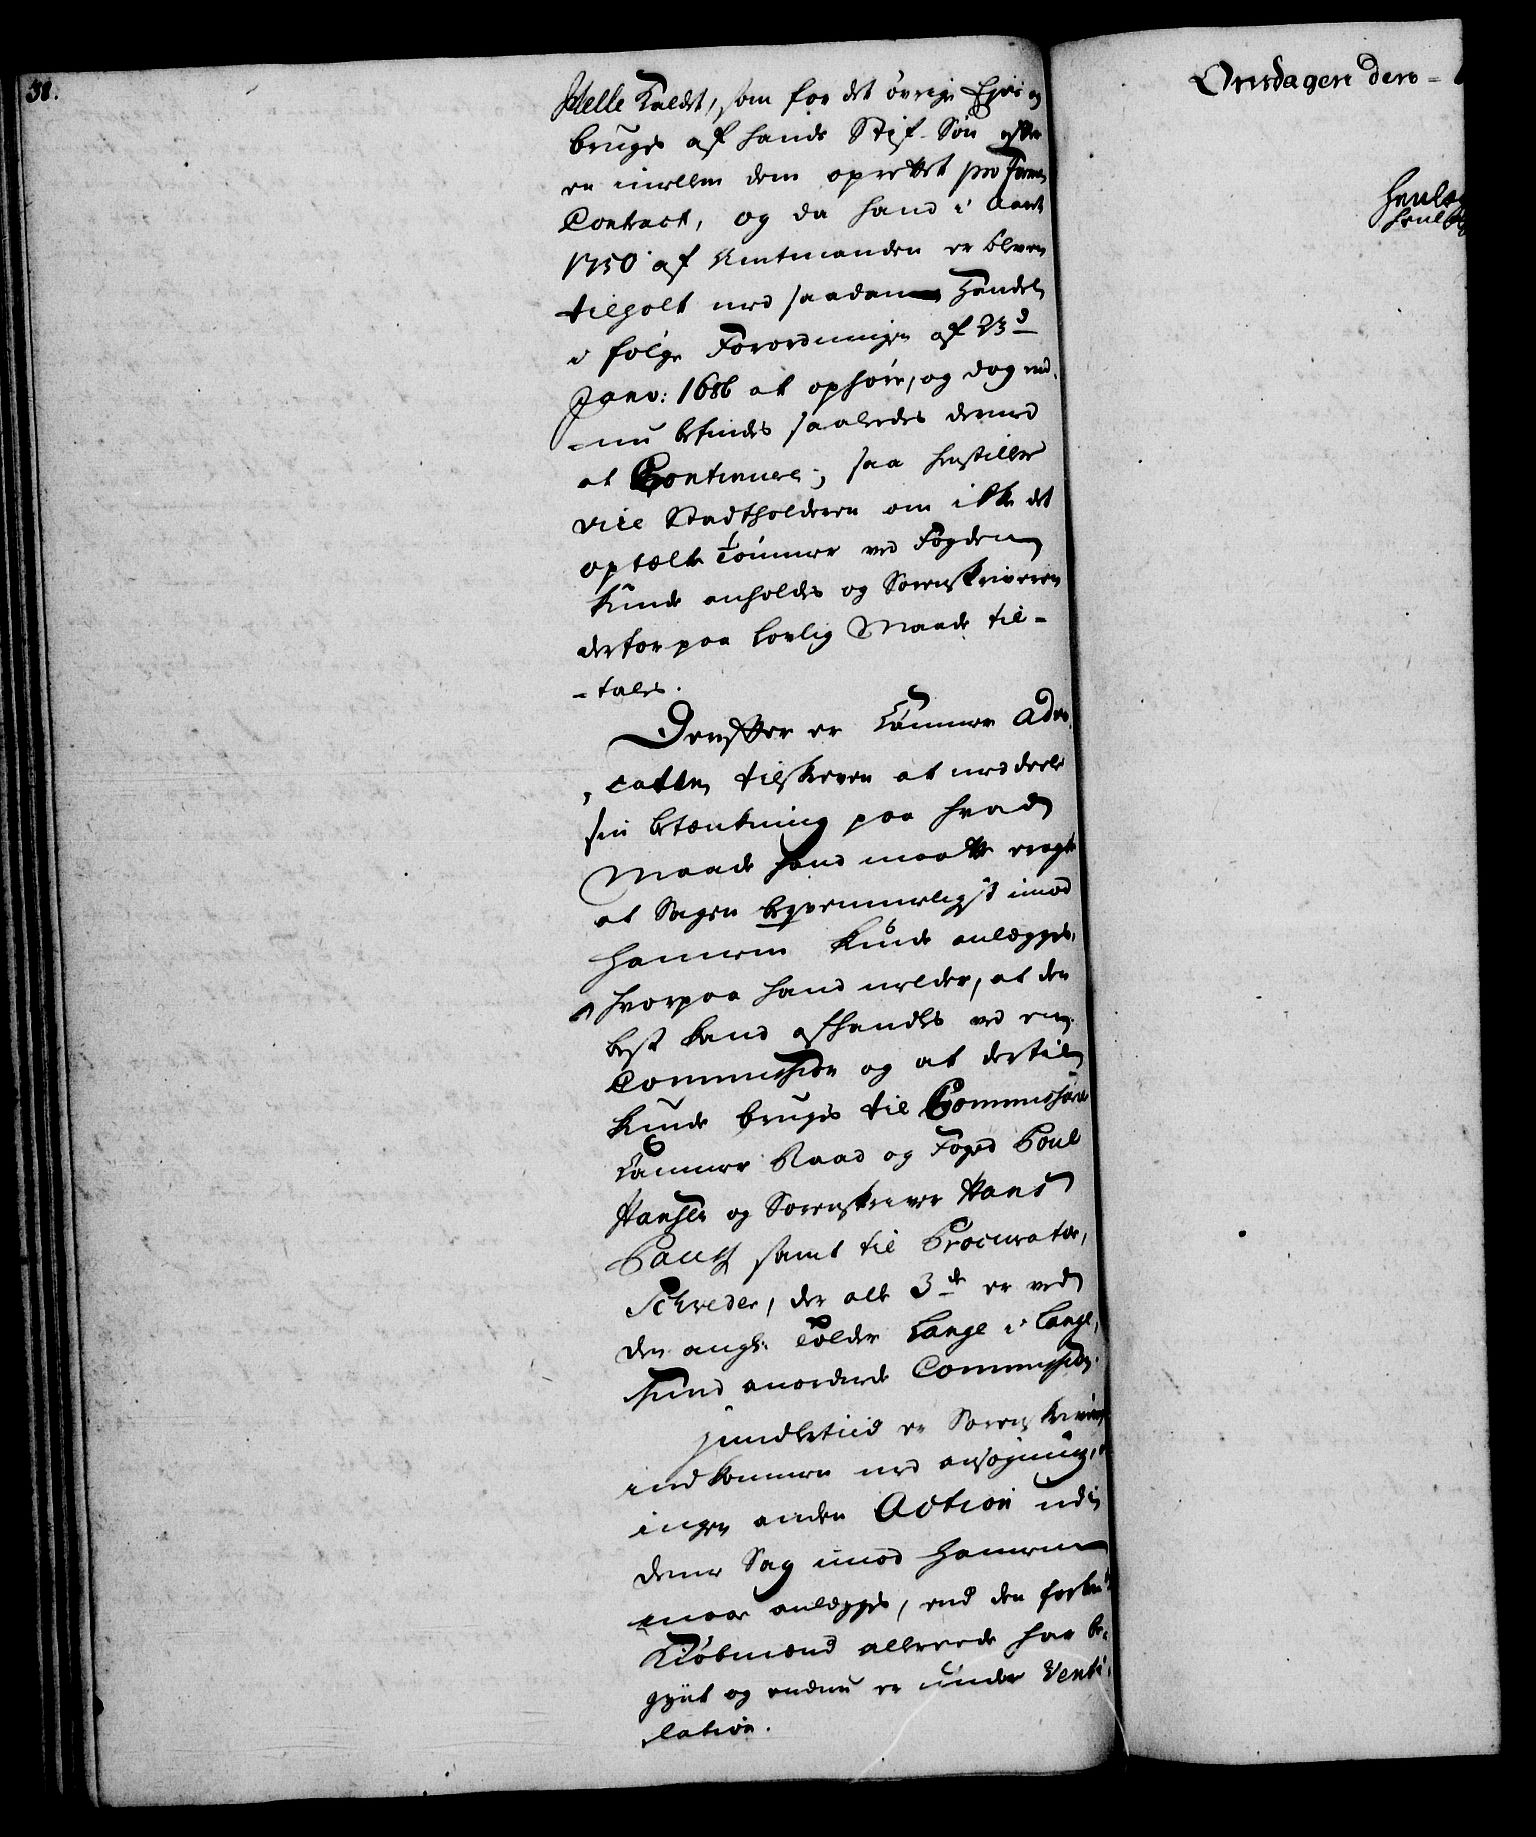 38.
Helle Kaldet, som for det övrige Ejes og
bruges af hands Stif-Søn efter
en imellem dem oprettet pro Forma
Contract, og da hand i Aaret
1750 af Amtmanden er bleven
tilholt med saadan Handel
i følge Forordningen af 23d
Janv: 1686 at ophøre, og dog end-
-nu befindes saaledes dermed
at Continuere, saa henstiller
Vice Stadtholderen om ikke det
optælte Tømmer ved Fogden
kunde anholdes og Sorenskriveren
derfor paa lovlig Maade til-
-tales.
Derefter er Cammer Advo-
-catten tilskreven at meddeele
sin betænkning paa hvad
Maade hand maatte eragte
at Sagen beqvemmeligst imod
Hannem kunde anlægges,
hvorpaa hand melder, at den
best kand afhandles ved en
Commission og at dertil
kunde bruges til Commissarier
Cammer Raad og Foged Poul
Hansen og Sorenskriver Hans
Pauch samt til Procurator,
Schreder, der alle 3de er ved
den angl: Tolder Lange i Lange-
sund anordnede Commission.
Imidlertiid er Sorenskriveren
indkommen med ansøgning, at
ingen anden Action udi
denne Sag imod Hannem
maae anlægges, end den
Kiøbmænd allereede har be-
gynt og endnu er under Venti-
lation.
Onsdagen den